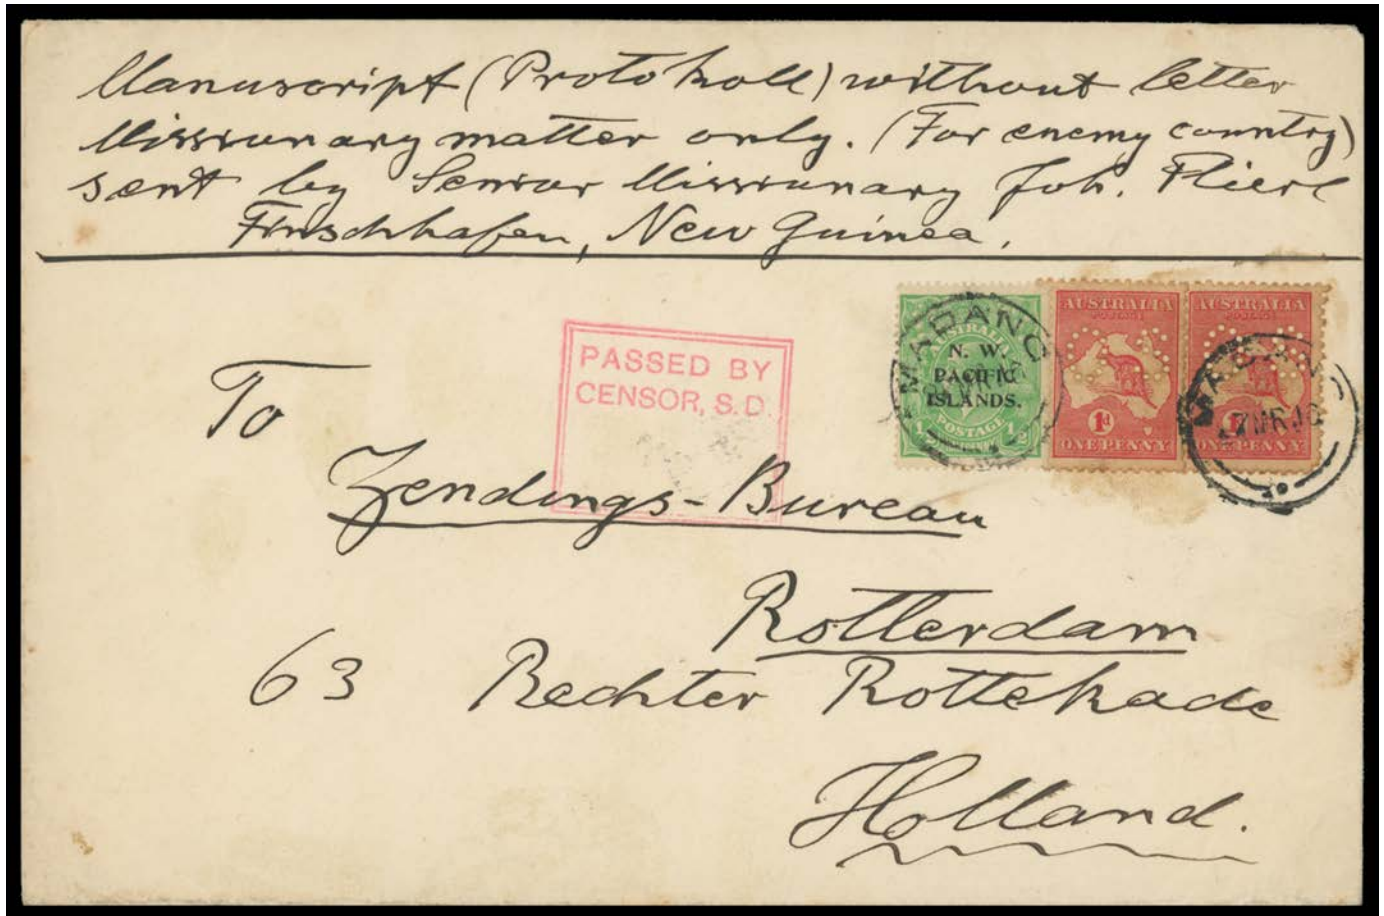 Manuscript (Protokoll) without letter
Missionary matter only. (For enemy country)
sent by Senior Missionary Joh. Flierl
Finschhafen, New Guinea.
MADANG
AUSTRALIA
N. W.
PACIFIC
ISLANDS.
½ POSTAGE ½
AUSTRALIA
POSTAGE
1d
ONE PENNY
AUSTRALIA
POSTAGE
1d
ONE PENNY
MADANG
PASSED BY
CENSOR, S.D.
To
Zendings-Bureau
Rotterdam
63 Rechter Rottekade
Holland.